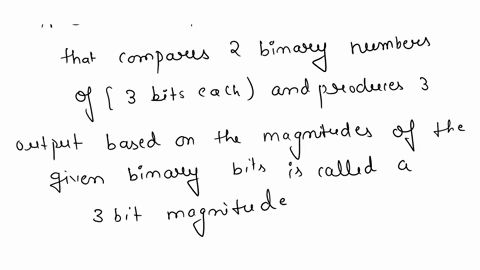 that compares 2 binary numbers
of [ 3 bits each) and produces 3
output based on the magnitudes of the
given binary bits is called a
3 bit magnitude